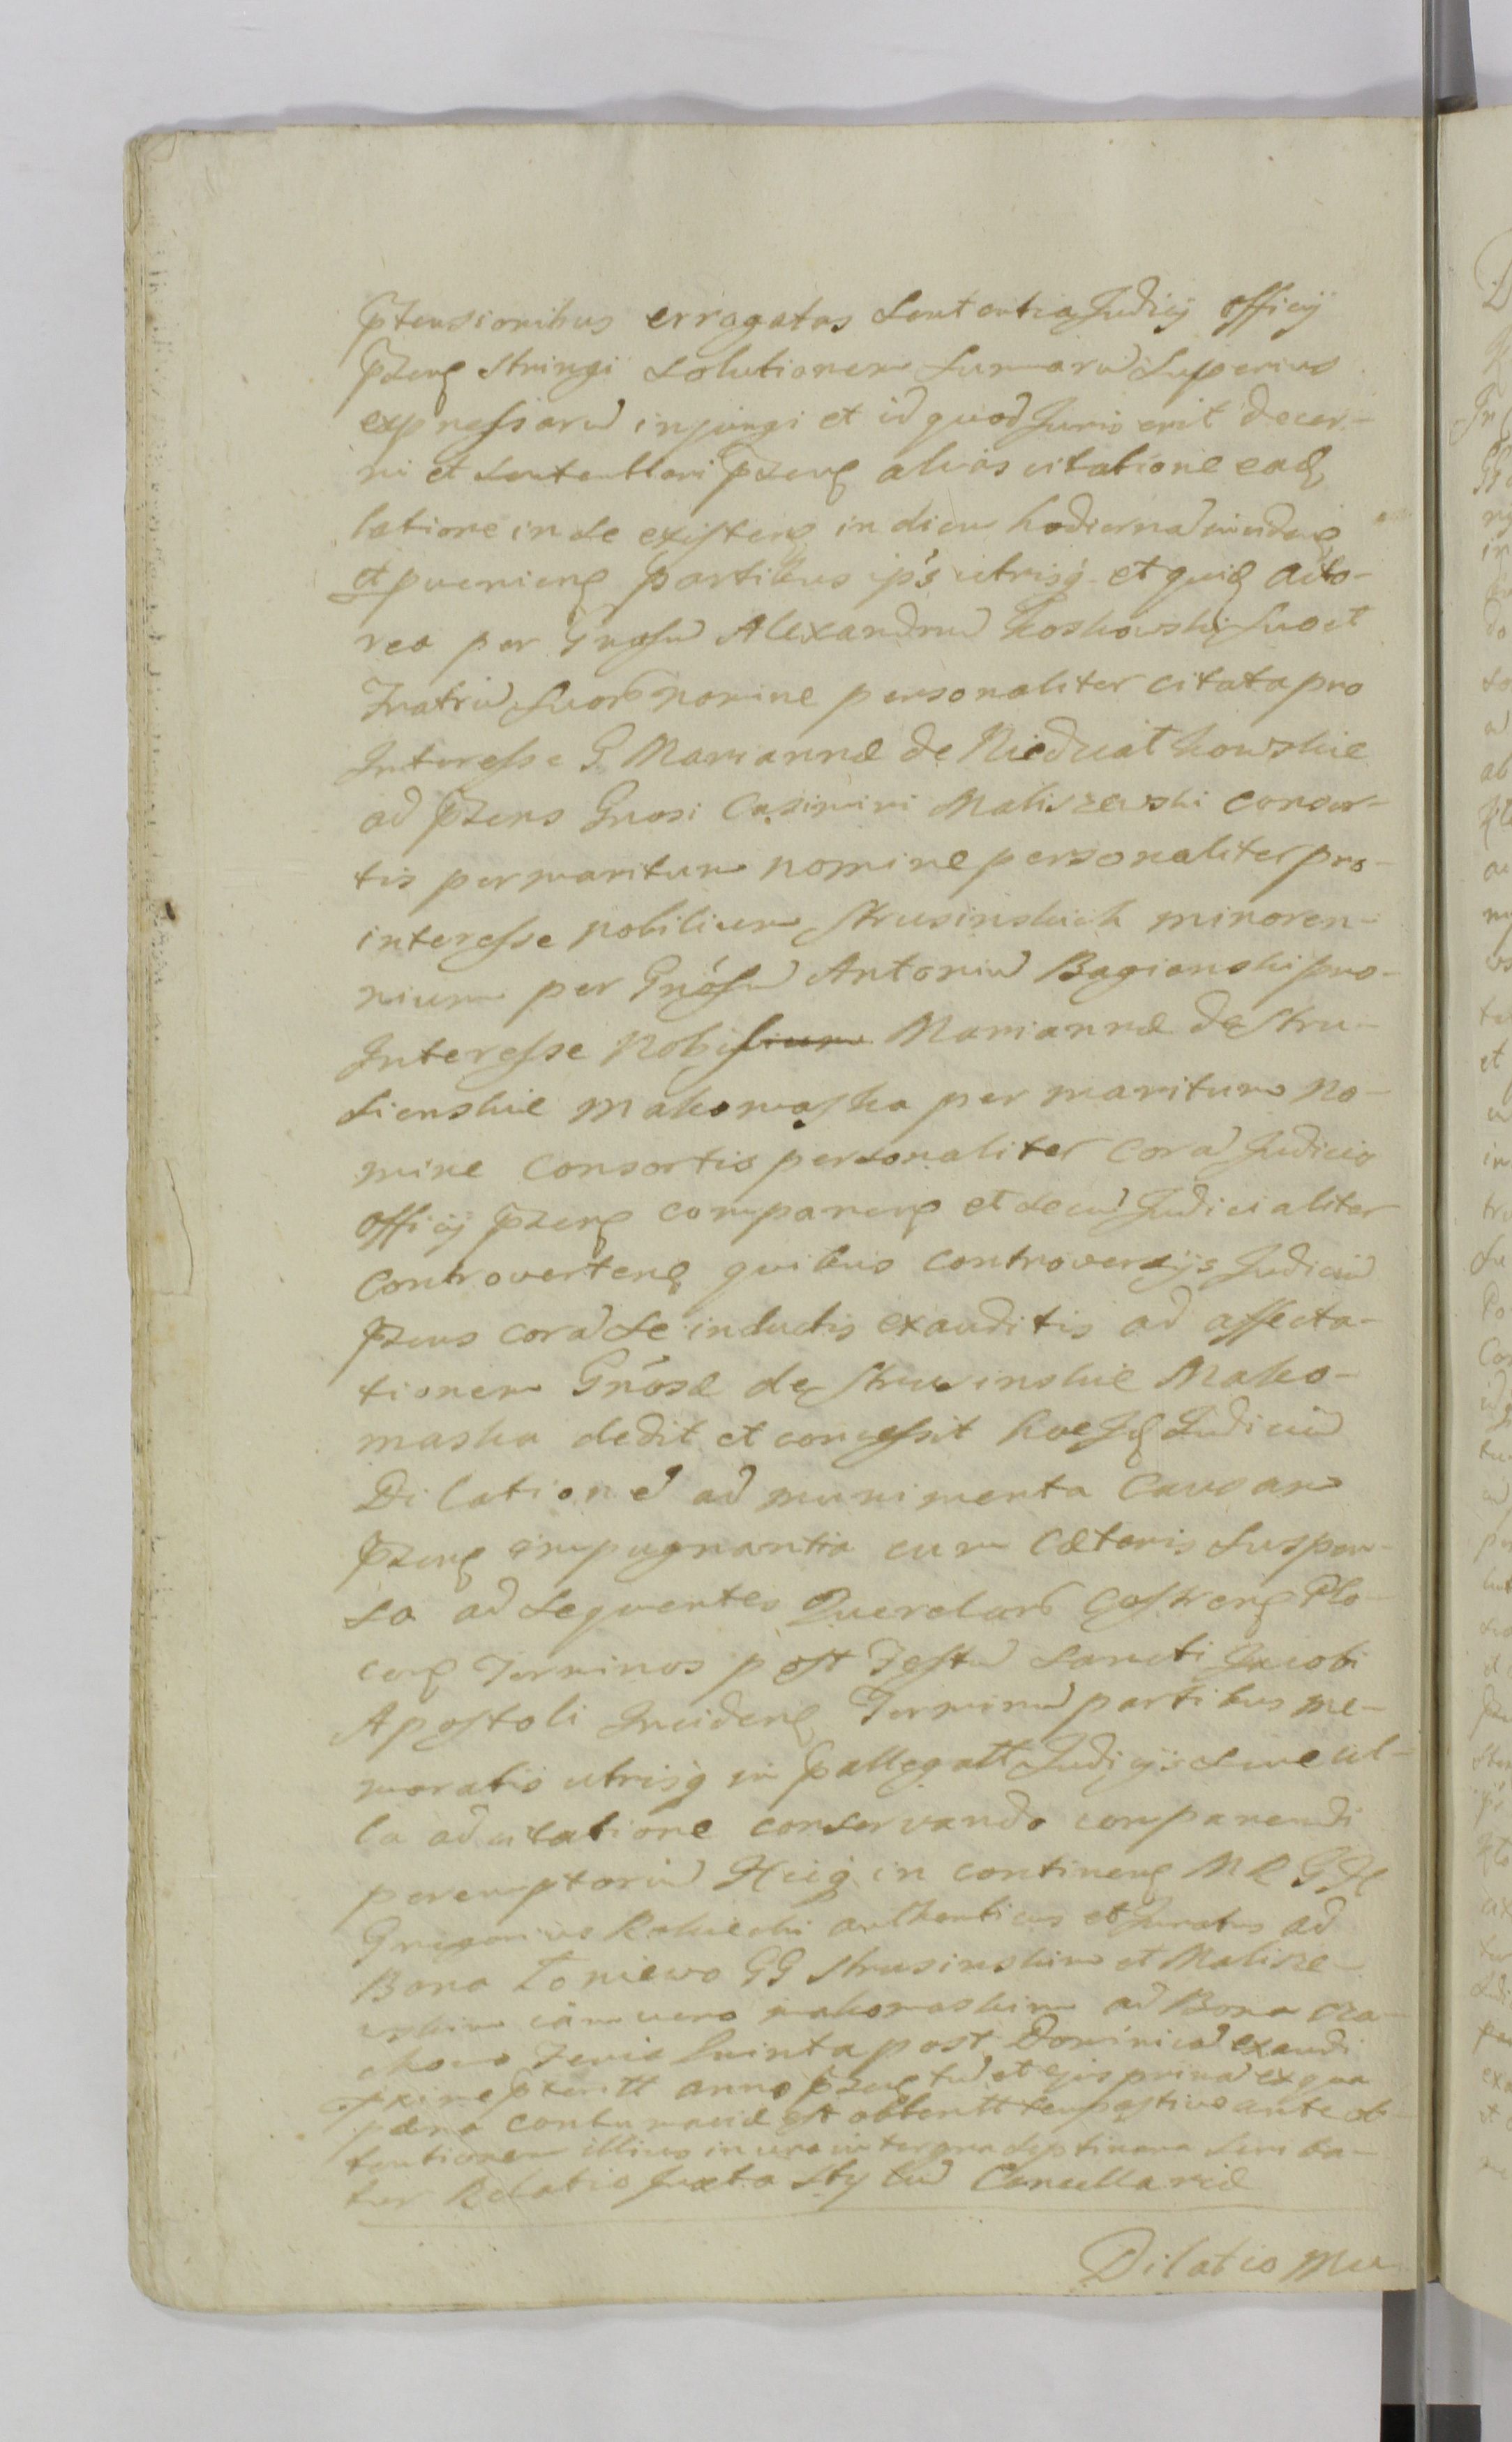 Ptensionibus errogatas Sententia Judicij Officij
Pzens stringi solutionem Sumarū Superius
expressarū injungi et id quod Juris erit decer-
ni et Sententiari Pzens alias citatione eadē
latione in se existens in diem hodiernā inciden
et pveniens partibus ips utrisq et quid acto-
rea per Gnosū Alexandrū Koskowski suo et
Fratrū Suor nomine personaliter citata pro
Interesse G Mariannæ de
ad Pzens Gnosi Casimiri Maliszewski consor-
tis per maritum nomine personaliter pro
interesse nobilium Strusinskich minoren-
nium per Gnosū Antoniū Bagienski pro
Interesse Nobilium Mariannæ de Stru-
sienskie Makomaska per maritum no-
mine consortis personaliter corā Judicio
Officij Pzens comparens et secū Judicialiter
Controvertens quibus controversijs Judiciū
Pzens corā se inductis exauditis ad affecta-
tionem Gnosæ de Strusinskie Mako-
maska dedit et concessit Judiciū
Dilationē ad munimenta causam
Pzens impugnantia cum Cæteris Suspen-
sa ad Sequentes Querelar Gostens Plo-
cens Terminos post Festū Sancti Jacobi
Apostoli Incidens Terminū partibus me-
moratis utrisq in pallegatt Judicijs Sine ul-
la adcitatione conservando comparendi
peremptoriū Hucq in continens M R G H
Gregorius Rokicki authenticus et Juratus ad
Bona Łoniewo GG Strusinskim et Malisze-
wskim iam vero makomaskim ad Bona
Feria Quinta post Dominicā exaudi
anno Pzens
pæna contumaciæ est obtentt tempestive ante ob-
tentionem illius in una integra Septimana
tur Relatio Juxta Stylū Cancellariæ
Dilatio Mu